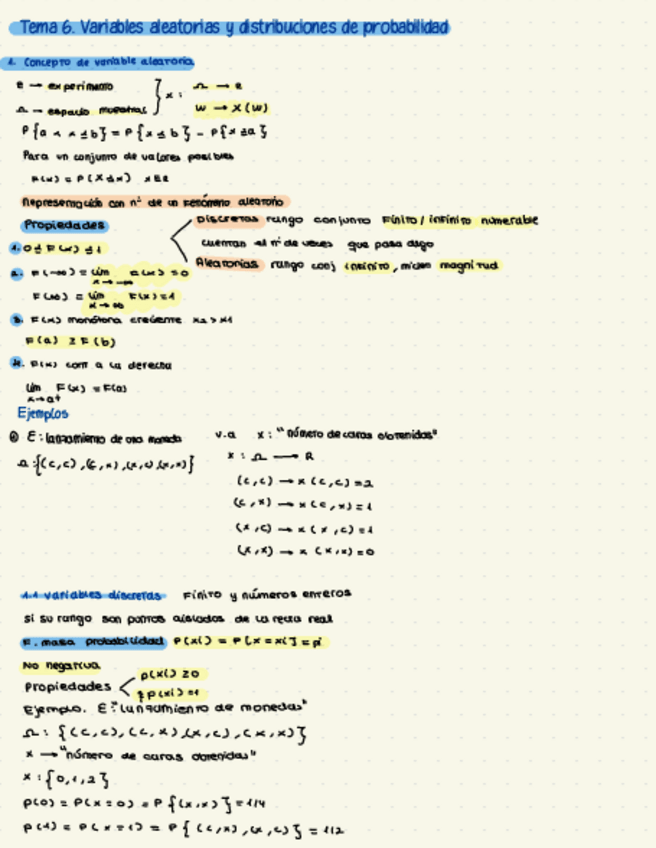 Tema 6. Variables aleatorias y distribuciones de probabilidad
1. Concepto de variable aleatoria
E → experimento
Ω → espacio muestral } X : Ω → R
W → X(W)
P{a < x ≤ b} = P{x ≤ b} - P{x ≤ a}
Para un conjunto de valores posibles
F(x) = P(X ≤ x) x ∈ R
Representación con nº de un fenómeno aleatorio
Propiedades
Discretas rango conjunto Finito / infinito numerable
cuentan el nº de veces que pasa algo
Aleatorias rango conj infinito, miden magnitud
1. 0 ≤ F(x) ≤ 1
2. F(-∞) = lim x→-∞ F(x) = 0
F(∞) = lim x→∞ F(x) = 1
3. F(x) monótona creciente x2 > x1
F(a) ≥ F(b)
4. F(x) cont a la derecha
lim x→a+ F(x) = F(a)
Ejemplos
E: lanzamiento de una moneda v.a x: "número de caras obtenidas"
Ω:{(c,c),(c,x),(x,c),(x,x)} x: Ω → R
(c,c) → x(c,c)=2
(c,x) → x(c,x)=1
(x,c) → x(x,c)=1
(x,x) → x(x,x)=0
1.1 Variables discretas Finito y números enteros
si su rango son puntos aislados de la recta real
F. masa probabilidad P(xi) = P[X = xi] = pi
No negativa
Propiedades p(xi) ≥ 0
Σ p(xi) = 1
Ejemplo. E: "lanzamiento de monedas"
Ω: {(c,c),(c,x),(x,c),(x,x)}
x → "número de caras obtenidas"
x: {0,1,2}
p(0) = P(x=0) = P{(x,x)} = 1/4
p(1) = P(x=1) = P{(c,x),(x,c)} = 1/2